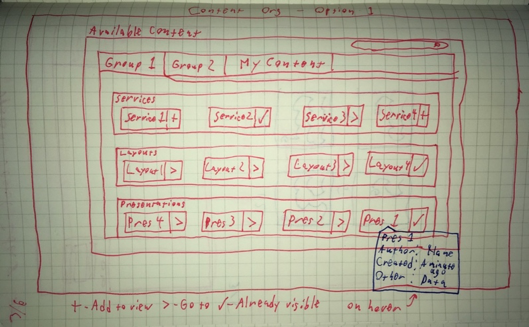 Content Org - Option 1
Available Content
Group 1 Group 2 My Content
Services
Service 1 + Service 2 ✓ Service 3 > Service 4 +
Layouts
Layout 1 > Layout 2 > Layout 3 > Layout 4 ✓
Presentations
Pres 4 > Pres 3 > Pres 2 > Pres 1 ✓
Pres 1
Author: Name
Created: A minute
ago
Other: Data
+ - Add to view > - Go to ✓ - Already visible on hover